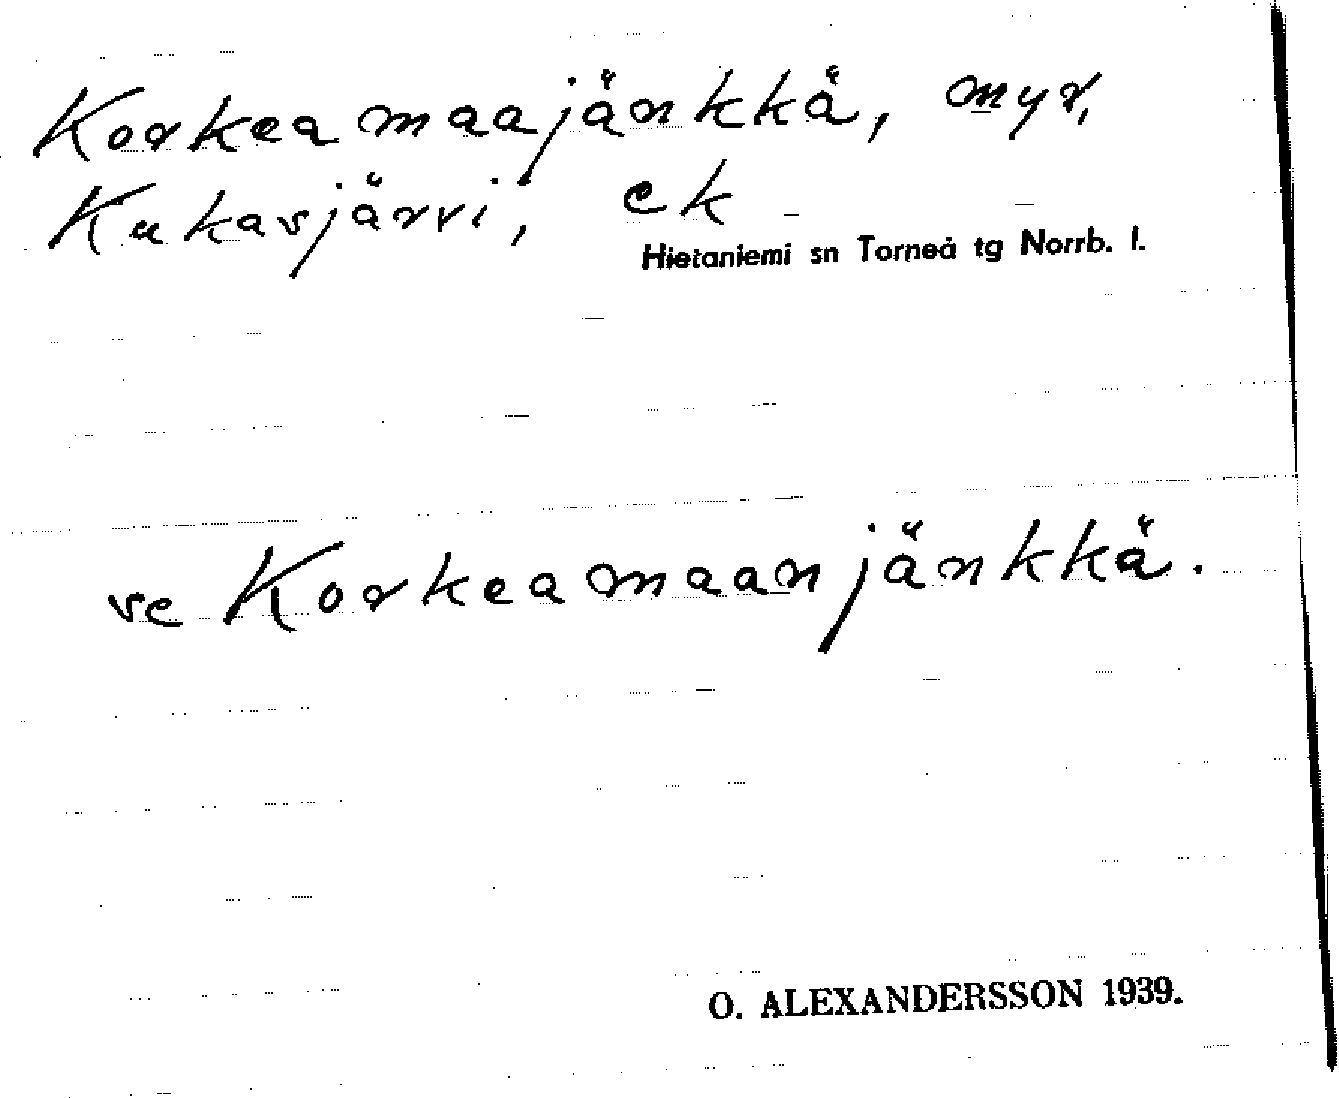 Korkeamaajänkkä, myr,
Kukasjärvi, ek
Hietaniemi sn Torneå tg Norrb. l.
se Korkeamaanjänkkä.
O. ALEXANDERSSON 1939.